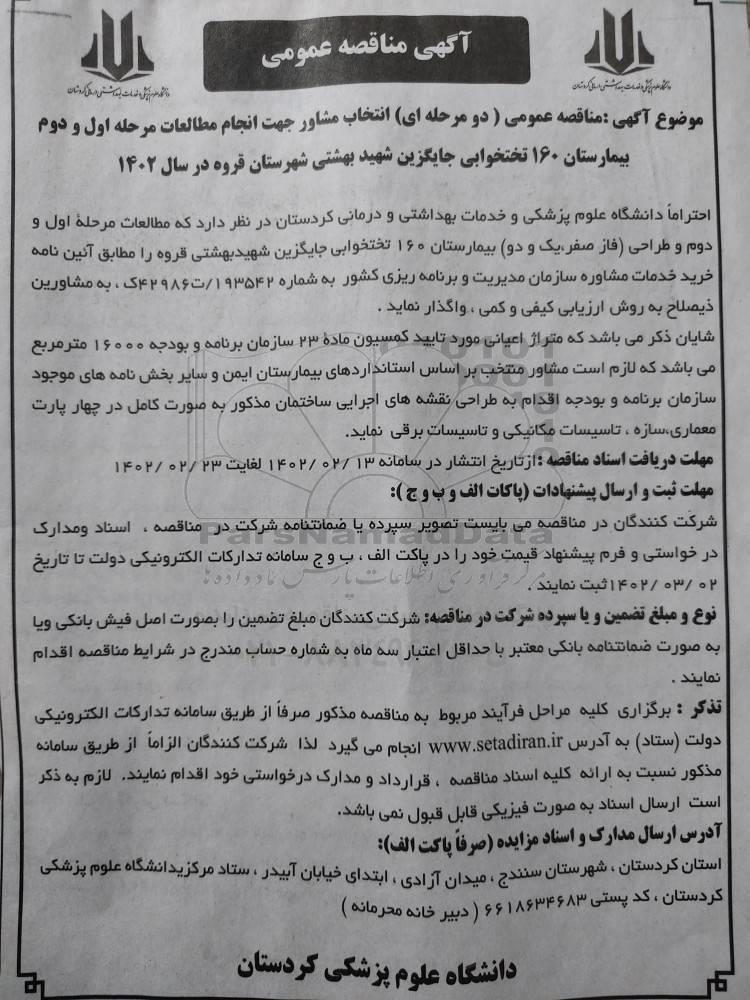 آگهی مناقصه عمومی
دانشگاه علوم پزشکی و خدمات بهداشتی درمانی کردستان
دانشگاه علوم پزشکی و خدمات بهداشتی درمانی کردستان
موضوع آگهی :مناقصه عمومی ( دو مرحله ای) انتخاب مشاور جهت انجام مطالعات مرحله اول و دوم
بیمارستان ۱۶۰ تختخوابی جایگزین شهید بهشتی شهرستان قروه در سال ۱۴۰۲
احتراماً دانشگاه علوم پزشکی و خدمات بهداشتی و درمانی کردستان در نظر دارد که مطالعات مرحلۀ اول و
دوم و طراحی (فاز صفر،یک و دو) بیمارستان ۱۶۰ تختخوابی جایگزین شهیدبهشتی قروه را مطابق آئین نامه
خرید خدمات مشاوره سازمان مدیریت و برنامه ریزی کشور به شماره ۱۹۳۵۴۲/ت۴۲۹۸۶ک ، به مشاورین
ذیصلاح به روش ارزیابی کیفی و کمی ، واگذار نماید .
شایان ذکر می باشد که متراژ اعیانی مورد تایید کمسیون مادۀ ۲۳ سازمان برنامه و بودجه ۱۶۰۰۰ مترمربع
می باشد که لازم است مشاور منتخب بر اساس استانداردهای بیمارستان ایمن و سایر بخش نامه های موجود
سازمان برنامه و بودجه اقدام به طراحی نقشه های اجرایی ساختمان مذکور به صورت کامل در چهار پارت
معماری،سازه ، تاسیسات مکانیکی و تاسیسات برقی نماید.
مهلت دریافت اسناد مناقصه :ازتاریخ انتشار در سامانه ۱۳ /۰۲ /۱۴۰۲ لغایت ۲۳ /۰۲ /۱۴۰۲
مهلت ثبت و ارسال پیشنهادات (پاکات الف و ب و ج ):
شرکت کنندگان در مناقصه می بایست تصویر سپرده یا ضمانتنامه شرکت در مناقصه ، اسناد ومدارک
ParsNamadData
در خواستی و فرم پیشنهاد قیمت خود را در پاکت الف ، ب و ج سامانه تدارکات الکترونیکی دولت تا تاریخ
مرکز فرآوری اطلاعات پارس نماد داده ها
۰۲ /۰۳ /۱۴۰۲ثبت نمایند .
نوع و مبلغ تضمین و یا سپرده شرکت در مناقصه: شرکت کنندگان مبلغ تضمین را بصورت اصل فیش بانکی ویا
به صورت ضمانتنامه بانکی معتبر با حداقل اعتبار سه ماه به شماره حساب مندرج در شرایط مناقصه اقدام
نمایند .
تذکر : برگزاری کلیه مراحل فرآیند مربوط به مناقصه مذکور صرفاً از طریق سامانه تدارکات الکترونیکی
دولت (ستاد) به آدرس www.setadiran.ir انجام می گیرد لذا شرکت کنندگان الزاماً از طریق سامانه
مذکور نسبت به ارائه کلیه اسناد مناقصه ، قرارداد و مدارک درخواستی خود اقدام نمایند. لازم به ذکر
است ارسال اسناد به صورت فیزیکی قابل قبول نمی باشد.
آدرس ارسال مدارک و اسناد مزایده (صرفاً پاکت الف):
استان کردستان ، شهرستان سنندج ، میدان آزادی ، ابتدای خیابان آبیدر ، ستاد مرکزیدانشگاه علوم پزشکی
کردستان ، کد پستی ۶۶۱۸۶۳۴۶۸۳ ( دبیر خانه محرمانه )
دانشگاه علوم پزشکی کردستان